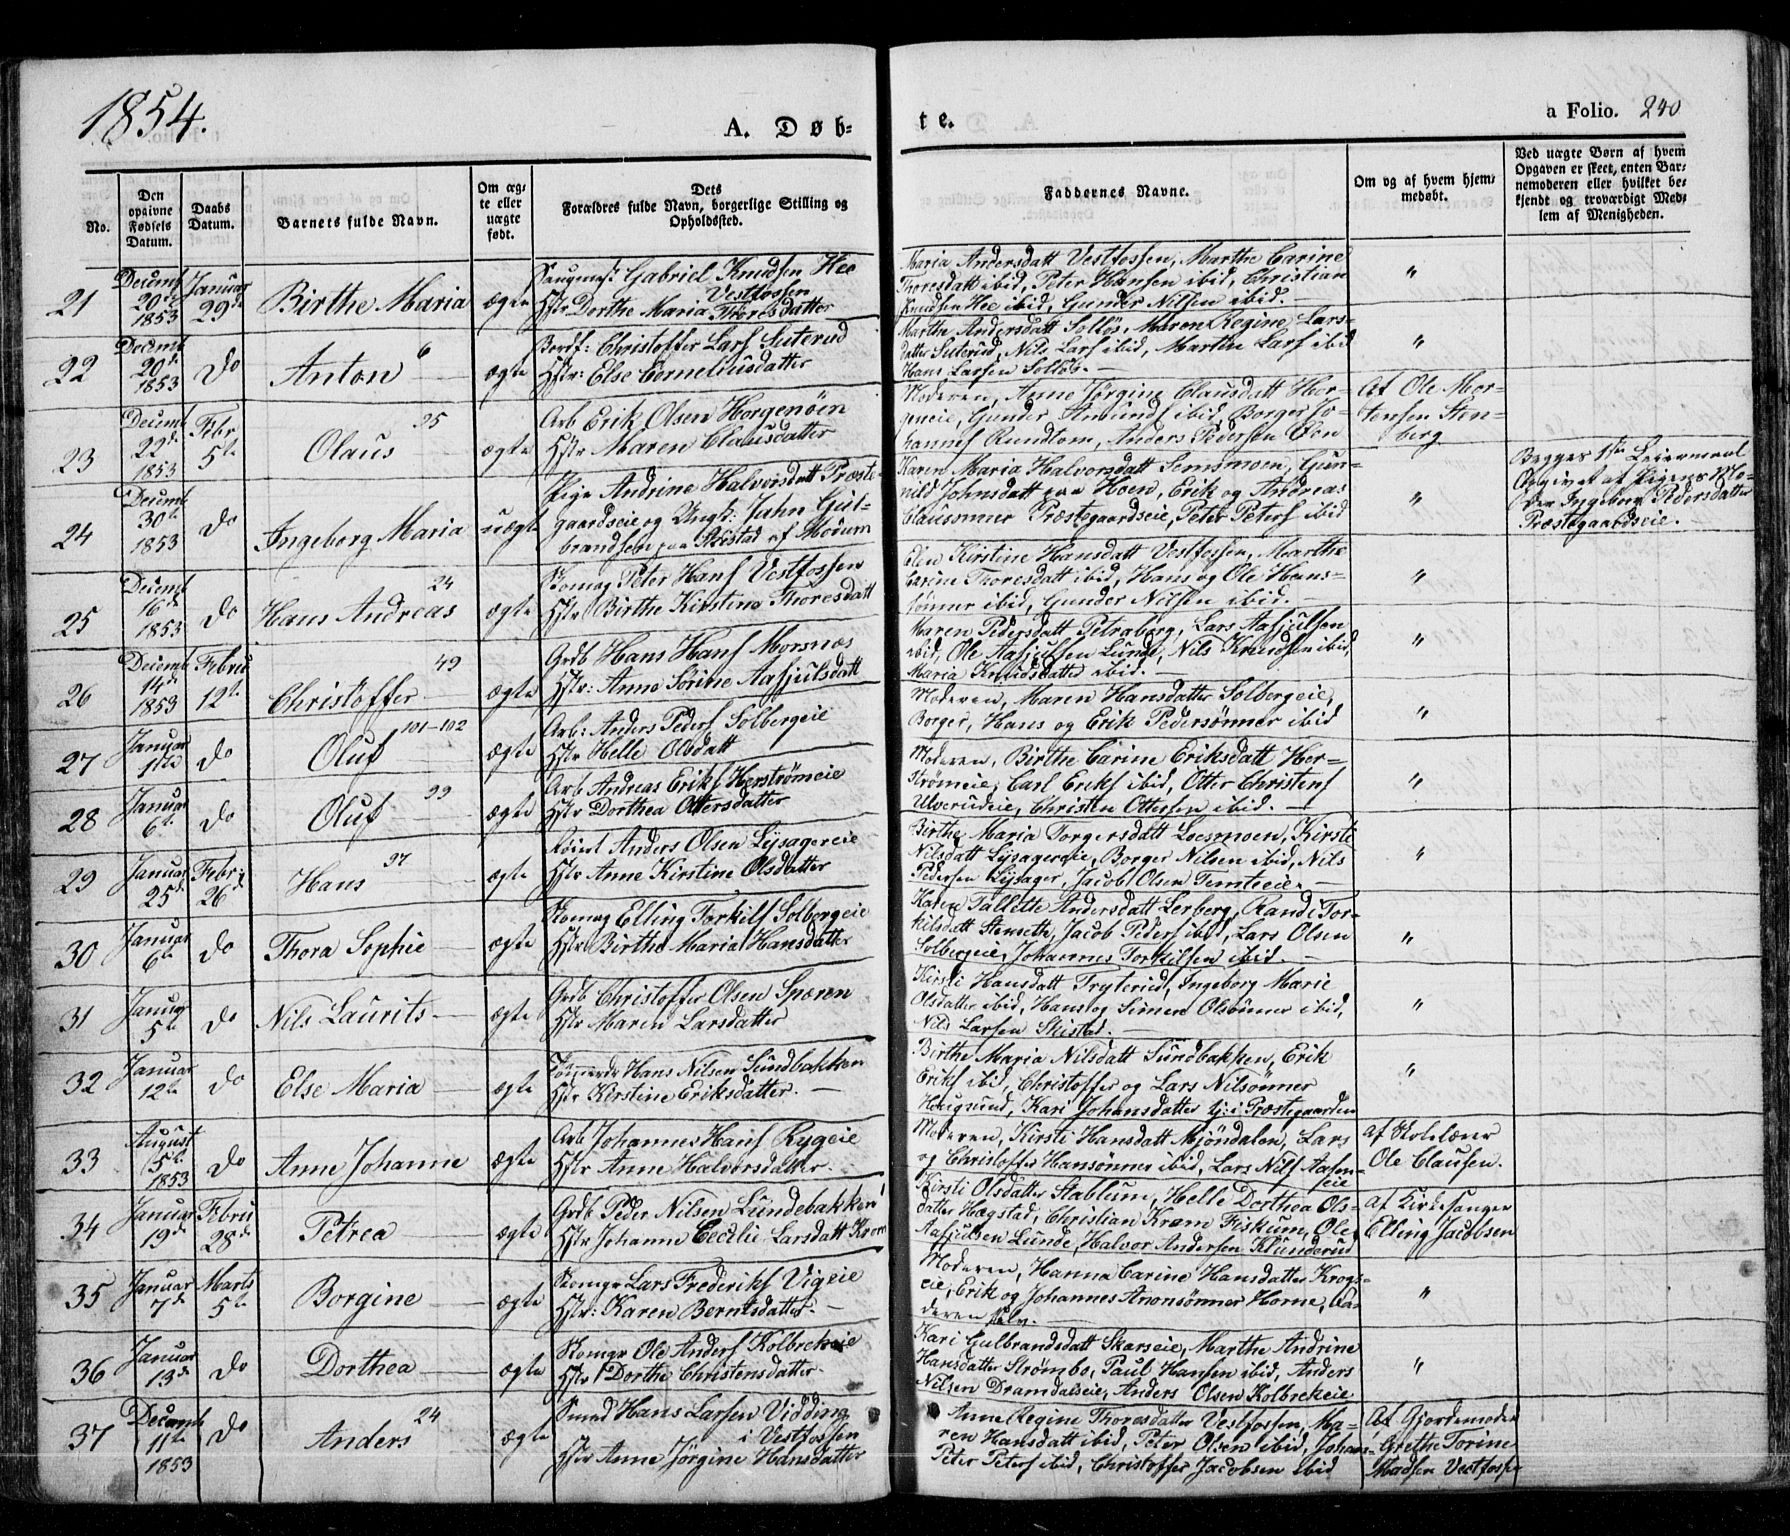 1854.
A. Døb-
te.
a Folio. 240
No.
Den opgivne Fødsels Datum.
Daabs Datum.
Barnets fulde Navn.
Om ægte eller uægte født.
Dets Forældres fulde Navn, borgerlige Stilling og Opholdssted.
Faddernes Navne.
Om og af hvem hjemmedøbt.
Ved uægte Børn af hvem
Opgaven er skeet, enten Bar-
nemoderen eller hvilket be-
kjendt og troværdigt Med-
lem af Menigheden.
21
Decemb 20de 1853
Januar 29de
Birthe Maria
ægte
Saugmest Gabriel Knudsen Hee
Vestfossen
Hstr Dorthe Maria Thoresdatter
Maria Andersdatt Vestfossen, Marthe Carine
Thoresdatt ibid, Peter Hansen ibid, Christian
Knudsen Hee ibid, Gunder Nilsen ibid.
"
22
Decemb 20de 1853
Do
Anton
6
ægte
Christoffer Lars Suterud
Hstr: Else Corneliusdatter
Marthe Andersdatt Solløs, Maren Regine Lars-
datter Suterud, Nils Lars ibid, Marthe Lars ibid
Hans Larsen Solløs.
"
23
Decemb 22de 1853
Febr 5te
Olaus
35
ægte
Arb Erik Olsen Horgenøin
Hstr Maren Clausdatter
Moderen, Anne Jørgine Clausdatt Hor-
geneie, Gunder Amunds ibid, Borger Jo-
hannes Rundtom, Anders Pedersen Øen
Af Ole Mor-
tensen Sten-
berg
24
Decemb 30te 1853
Do
Ingeborg Maria
uægte
Pige Andrine Halvorsdatt Præste-
gaardseie og Ungk: Jahn Gul-
brandsen paa Skistad af Modum
Karen Maria Halvorsdatt Semsmoen, Gun-
nild Johnsdatt paa Hoen, Erik og Andreas
Claussønner Præstegaardseie, Peter Peters ibid
"
Begges 1ste Leiermaal
Opgivet af Pigens Mo-
der Ingeborg Pedersdatter
Præstegaardseie.
25
Decemb 16de 1853
Do
Hans Andreas
24
ægte
Skomag Peter Hans Vestfossen
Hstr Birthe Kirstine Thoresdatt
Elen Kirstine Hansdatt Vestfossen, Marthe
Carine Thoresdatt ibid, Hans og Ole Hans-
sønner ibid, Gunder Nilsen ibid.
"
26
Decemb 14de 1853
Febru 12te
Christoffer
49
ægte
Grdb Hans Hans Morsnæs
Hstr: Anne Sørine Aasjulsdatt
Maren Pedersdatt Petraborg, Lars Aasjulsen
ibid, Ole Aasjulsen Lunde, Nils Knudsen ibid,
Maria Knudsdatter ibid.
"
27
Januar 1ste
Do
Oluf
101-102
ægte
Arb: Anders Peders Solbergeie
Hstr Helle Olsdatt
Moderen, Maren Hansdatter Solbergeie,
Borger, Hans og Erik Pedersønner ibid
"
28
Januar 6te
Do
Oluf
99
ægte
Arb Andreas Eriks Herstrømeie
Hstr Dorthea Ottersdatter
Moderen, Birthe Carine Eriksdatt Her-
strømeie, Carl Eriks ibid, Otter Christens
Ulverudeie, Christen Ottersen ibid.
"
29
Januar 25de
Febr. 26de
Hans
97
ægte
Anders Olsen Lysagereie
Hstr Anne Kirstine Olsdatter
Birthe Maria Borgersdatt Loesmoen, Kirsti
Nilsdatt Lysagereie, Borger Nilsen ibid, Nils
Pedersen Lysager, Jacob Olsen Temteeie.
"
30
Januar 6te
Do
Thora Sophie
ægte
Skomag Elling Torkils Solbergeie
Hstr Birthe Maria Hansdatter
Karen Tallette Andersdatt Lerberg, Randi Tor-
kilsdatt Stenseth, Jacob Peders ibid, Lars Olsen
Solbergeie, Johannes Torkilsen ibid.
"
31
Januar 5te
Do
Nils Laurits
ægte
Grdb Christoffer Olsen Sparen
Hstr Maren Larsdatter
Kirsti Hansdatt Tryterud, Ingeborg Marie
Olsdatter ibid, Hans og Simen Olsønner ibid,
Nils Larsen Skistad.
"
32
Januar 12te
Do
Else Maria
ægte
Hans Nilsen Sundbakken
Hstr Kirstine Eriksdatter.
Birthe Maria Nilsdatt Sundbakken, Erik
Eriks ibid, Christoffer og Lars Nilsønner
Hougsund, Kari Johansdatter tj: i Præstegaarden
"
33
August 5te 1853
Do
Anne Johanne
ægte
Arb Johannes Hans Rygeie
Hstr Anne Halvorsdatter.
Moderen, Kirsti Hansdatt Mjøndalen, Lars
og Christoffer Hansønner ibid, Lars Nils Aasen-
eie
af Skolelærer
Ole Clausen.
34
Januar 19de
Febru 28de
Petrea
ægte
Grdb Peder Nilsen Lundebakken
Hstr Johanne Cecilie Larsdatt Krom
Kirsti Olsdatter Stablum, Helle Dorthea Ols-
datter Hagstad, Christian Krøm Fiskum, Ole
Aasjulsen Lunde, Halvor Andersen Klunderud
af Kirkesanger
Elling Jacobsen
35
Januar 7de
Marts 5te
Borgine
ægte
Skomgr Lars Frederiks Vigeie
Hstr: Karen Berntsdatter.
Moderen, Hanna Carine Hansdatter Krogs-
eie, Erik og Johannes Anonsønner Horne, Fa-
deren selv.
"
36
Januar 13de
Do
Dorthea
ægte
Skomgr Ole Anders Kolbrekeie
Hstr Dorthe Christensdatter
Kari Gulbrandsdatt Skarseie, Marthe Andrine
Hansdatter Strømbo, Paul Hansen ibid, Anders
Nilsen Dramdalseie, Anders Olsen Kolbrekeie
"
37
Decemb 11te 1853
Do
Anders
24
ægte
Smed Hans Larsen Vidding
i Vestfossen
Hstr Anne Jørgine Hansdatter
Anne Regine Thoresdatter Vestfossen, Ma-
ren Hansdatt ibid, Peter Olsen ibid, Johan-
Peter Peters ibid, Christoffer Jacobsen ibid
Af Gjordemoder
Grethe Torine
Madsen Vestfossen